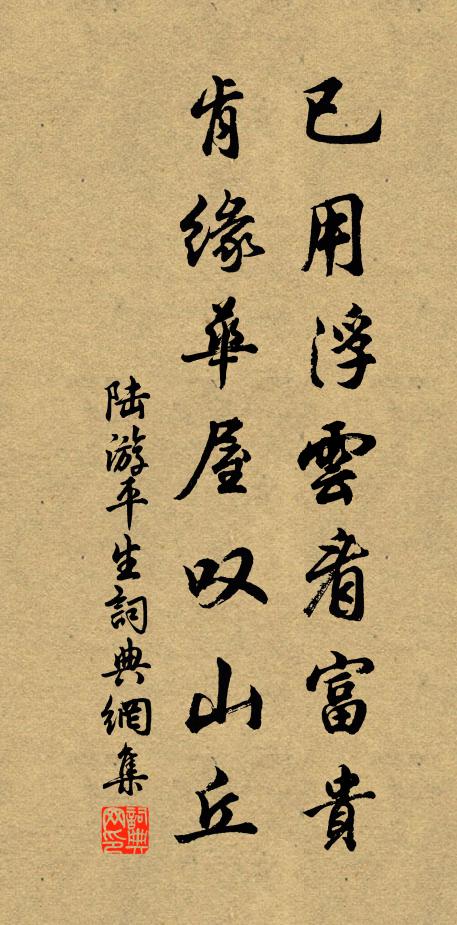 已用浮雲看富貴
肯緣華屋叹山丘
陆游平生詞典網集
詞典网印